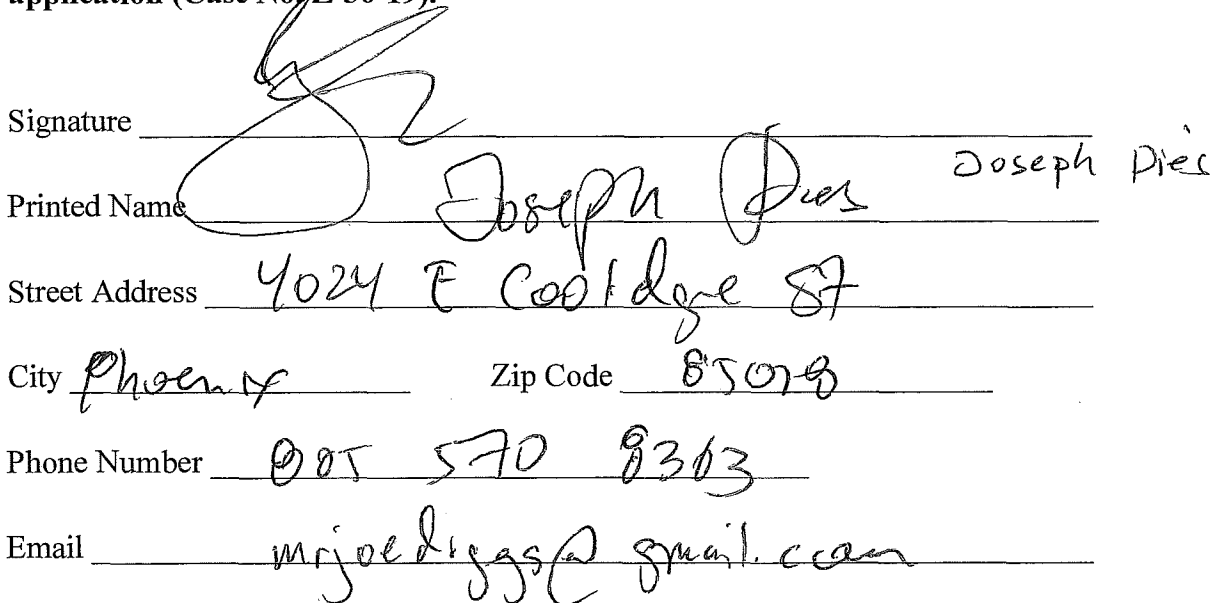 application (Case No. Z-56-19).
Signature
Printed Name Joseph Dies Joseph Dies
Street Address 4024 E Coolidge St
City Phoenix Zip Code 85018
Phone Number 805 570 8363
Email mrjoediggs@gmail.com